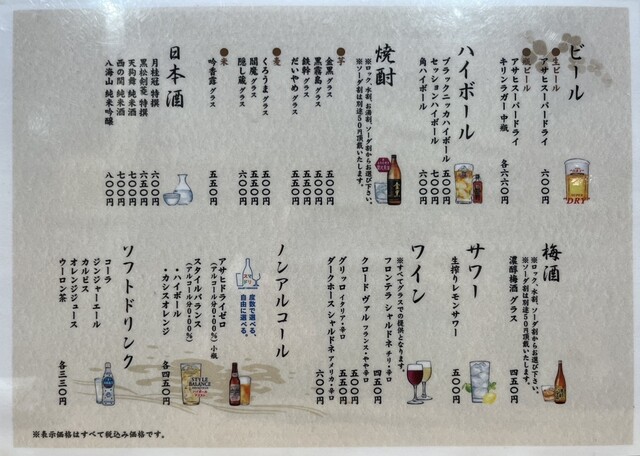 ビール
●生ビール
アサヒスーパードライ 六〇〇円
●瓶ビール
アサヒスーパードライ
キリンラガー 中瓶 各六六〇円
"DRY"
ハイボール
ブラックニッカハイボール 五〇〇円
セッションハイボール 七〇〇円
角ハイボール 六〇〇円
焼酎
※ロック、水割、お湯割、ソーダ割からお選び下さい。
※ソーダ割は別途50円頂戴いたします。
●芋
金黒 グラス 五〇〇円
黒霧島 グラス 五五〇円
鉄幹 グラス 五五〇円
だいやめ グラス 六〇〇円
●麦
くろうま グラス 五五〇円
閻魔 グラス 五五〇円
隠し蔵 グラス 六〇〇円
●米
吟香露 グラス 五五〇円
日本酒
月桂冠 特撰 六〇〇円
黒松剣菱 特撰 六五〇円
天狗舞 純米酒 七〇〇円
西の関 純米酒 七〇〇円
八海山 純米吟醸 八〇〇円
梅酒
※ロック、水割、ソーダ割からお選び下さい。
※ソーダ割は別途50円頂戴いたします。
濃醇梅酒 グラス 四五〇円
サワー
生搾りレモンサワー 五〇〇円
ワイン
※すべてグラスでの提供となります。
フロンテラ シャルドネ チリ・辛口 四五〇円
クロード ヴァル フランス・やや辛口 五〇〇円
グリッロ イタリア・辛口 五五〇円
ダークホース シャルドネ アメリカ・辛口 六〇〇円
ノンアルコール
度数で選べる、
自由に選べる。
アサヒドライゼロ
(アルコール分0.00%) 小瓶
スタイルバランス
(アルコール分0.00%)
・ハイボール
・カシスオレンジ
各四五〇円
STYLE BALANCE
ソフトドリンク
コーラ
ジンジャーエール
カルピス
オレンジジュース
ウーロン茶
各三三〇円
※表示価格はすべて税込み価格です。